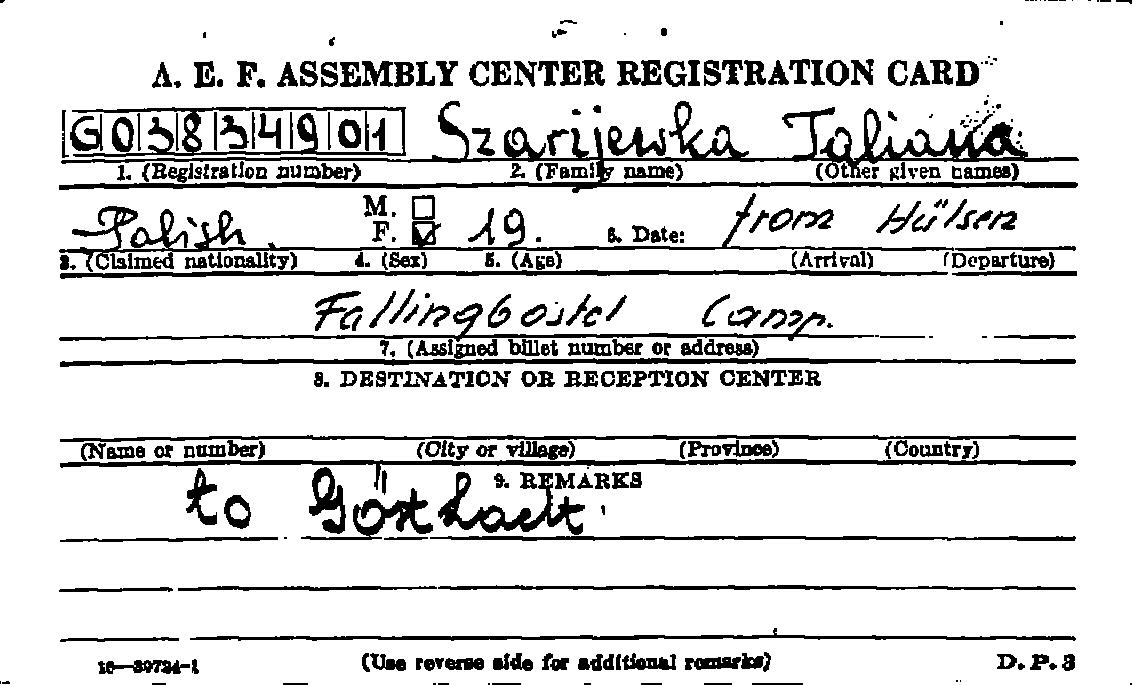 A. E. F. ASSEMBLY CENTER REGISTRATION CARD
G03834901 Szarijewka Taliana
1. (Registration number) 2. (Family name) (Other given names)
Polish. M. ☐ F. ☑ 19. 6. Date: from Hülsen
3. (Claimed nationality) 4. (Sex) 5. (Age) (Arrival) (Departure)
Fallingbostel Camp.
7. (Assigned billet number or address)
8. DESTINATION OR RECEPTION CENTER
(Name or number) (City or village) (Province) (Country)
9. REMARKS
to
(Use reverse side for additional remarks)
16—39724-1 D. P. 3